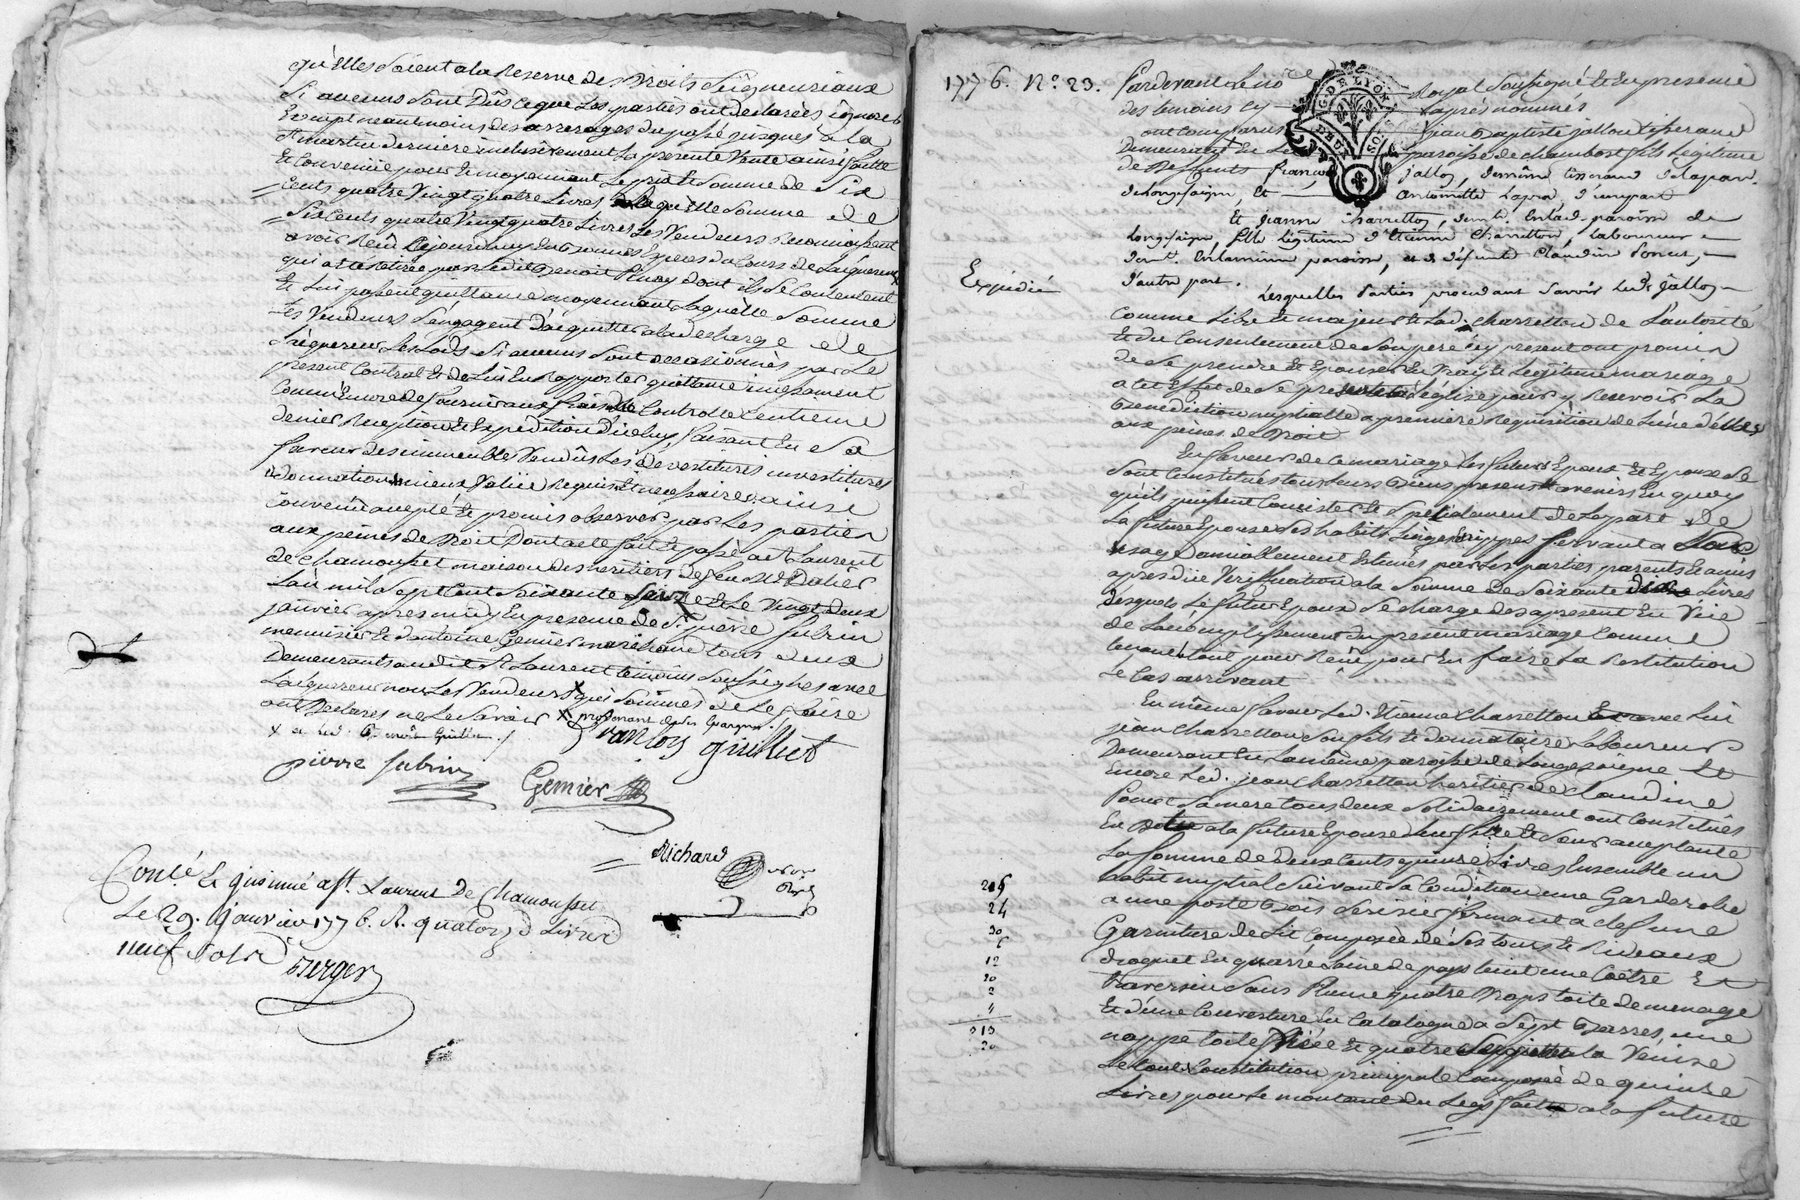 qu'elles soient a la Reserve des Droits Seigneuriaux
Si aucuns sont Dûs ce que Les parties ont declarées ignorer
Exempt neautmoins des arrerages du passé jusques a la
St martin derniere inclusivement La presente Vente ainsi faitte
Et Convenüe pour Et moyennant Le prix Et Somme de Six
Cents quatre Vingt quatre Livres laquelle Somme de
Six Cents quatre Vingt quatre Livres Les Vendeurs Reconnoissent
avoir Reçû Cejourdhuy En Bonnes Especes du Cours de L'aquereur
qui a été retirée par Led it Benoit dont ils Se Contentent
Et Lui passent quittance moyennant Laquelle Somme
Les Vendeurs Sengagent d'acquitter a la decharge de
L'aquereur Les Lods Si aucuns Sont occasionnés par Le
present Contrat Et de Lui En Rapporter quittance incessament
Comm'Encore de fournir aux frais de Controlle Centieme
denier Reception Et Expedition Diceluy, faisant En Sa
faveur Des immeubles Vendûs Les Devestitures investitures
Donnation mieux Valüe Requis Et necessaires ainsi
Convenû accepté Et promis observer par Les parties
aux peines de Droit Dont acte fait Et passé a St Laurent
de Chamousset maison des heritiers de feu Mr Dalier
L'an mil Sept Cent Soixante Seize Et Le Vingt Deux
janvier apres midy En presence de Sr pierre Subrin
menuisier Et d'antoine Gemier marechand tous deux
Demeurants audit St Laurent temoins Soussignés avec
L'aquereur non Les Vendeurs qui Sommés de Le faire
ont Declarés ne Le Savoir X provenant de Ses Epargnes
X et Led. Benoit Guilliet ./.
francoy guilliet
pierre subrin
Gemier
Richard
Con.lé Et insinué a St. Laurent De Chamousset
Le 29. Janvier 1776. R. quatorze Livres
neuf Sols
Berger
1776. N.o 23.
Pardevant Le no re Royal Soussigné Et En presence
des temoins cy apres nommés
ont Comparus jean Baptiste jalloy tisserand
Demeurant En La paroisse de chambost fils Legitime
de Deffunts françois jalloy, tisserand de la par.
de longesaigne, Et antoinette d'une part
Et jeanne Charretton, dem.t En lad. paroisse de
Longesaigne, fille Légitime d'Etienne Charretton, Laboureur
dem.t En La même paroisse, et de défunte Claudine Poncet,
d'autre part.
Expédié
Lesquelles Parties procedant Savoir Led. jalloy
Comme Libre Et majeur Et Lad. Charretton de L'autorité
Et du Consentement de Son pere cy present ont promis
de Se prendre Et Epouser En Vray Et Legitime mariage
a cet Effet de Se presenter a L'eglise pour y Recevoir La
Benediction nuptialle a premiere Requisition de L'un d'Elles
aux peines de Droit
En faveur de Ce mariage Les futurs Epoux Et Epouse Se
Sont Constitués tous Leurs Biens presents Et avenirs En quoy
qu'ils puissent Consister Et Specialement de La part de
La future Epouse Les habits Linges Nippes Servant a Son
usage amiablement Estimés par Les parties parents Et amis
apres dûe Verification a la Somme De Soixante Livres
Desquels Le futur Epoux Se charge des a present En Vüe
de L'accomplissement du present mariage Comme
tenant tout pour Reçû pour En faire La Restitution
Le Cas arrivant
En même faveur Led. Etienne Charretton avec Lui
jean Charretton Son fils Et Donnataire Laboureurs
Demeurant En La même paroisse de Longesaigne Et
Encore Led. jean Charretton heritier de Claudine
Poncet Sa mere tous deux Solidairement ont Constitués
En Dotte a la future Epouse Leur fille Et Soeur acceptante
La Somme de Deux Cents quinze Livres Ensemble un
habit nuptial Suivant Sa Condition une Garderobe
a une porte Bois Cerisier fermant a clef une
Garniture de Lit Composée de Ses tours Et Rideaux
droguet En quarre Laine de pays teint une Coetre Et
traversin Sans Plume quatre Draps toile de menage
Et d'une Couverture En Catalogne a Sept Barres, une
nappe toile Et quatre Serviettes a la Venise
Le tout Constitution principale Composée de quinze
Livres pour Le montant du Legs fait a la future
24
30
6
12
20
2
4
313
20